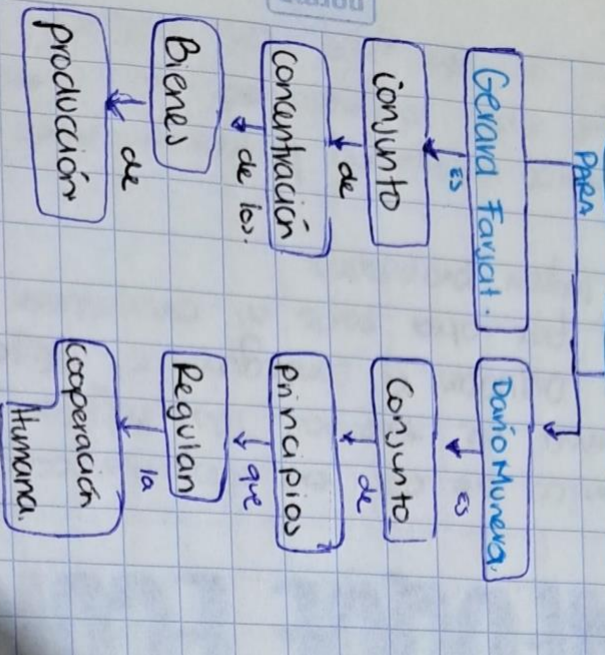 PARA
Gerard Farjat.
es
conjunto
de
concentración
de los.
Bienes
de
producción
Darío Munera.
es
Conjunto
de
principios
que
Regulan
la
cooperación
Humana.